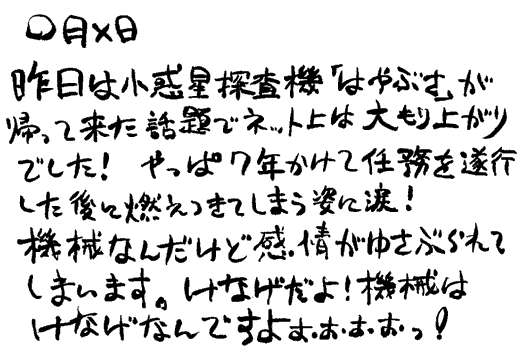 〇月×日
昨日は小惑星探査機「はやぶさ」が
帰って来た話題でネット上は大もり上がり
でした！ やっぱ7年かけて任務を遂行
した後に燃えつきてしまう姿に涙！
機械なんだけど感情がゆさぶられて
しまいます。けなげだよ！機械は
けなげなんですよぉ・ぉ・ぉ・ぉっ！